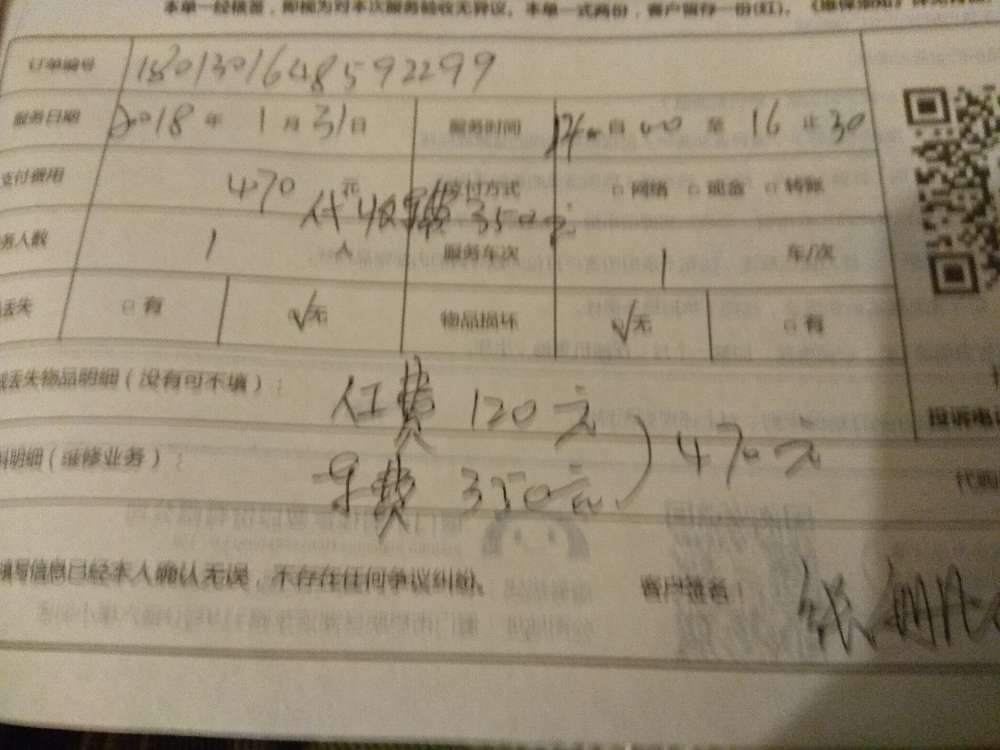 本单一经核签，即视为对本次服务验收无异议。本单一式两份，客户留存一份(红)。
订单编号 1801301648592299
服务日期 2018年 1月31日 服务时间 14 自 00 至 16 止 30
支付费用 470 元 支付方式 □网络 □现金 □转账
代收车费350元
务人数 1 人 服务车次 1 车/次
丢失 □有 √无 物品损坏 √无 □有
丢失物品明细（没有可不填）： 人工费 120元
投诉电
明细（维修业务）： 车费 350元 ) 470元
代购
填写信息已经本人确认无误，不存在任何争议纠纷。 客户签名：